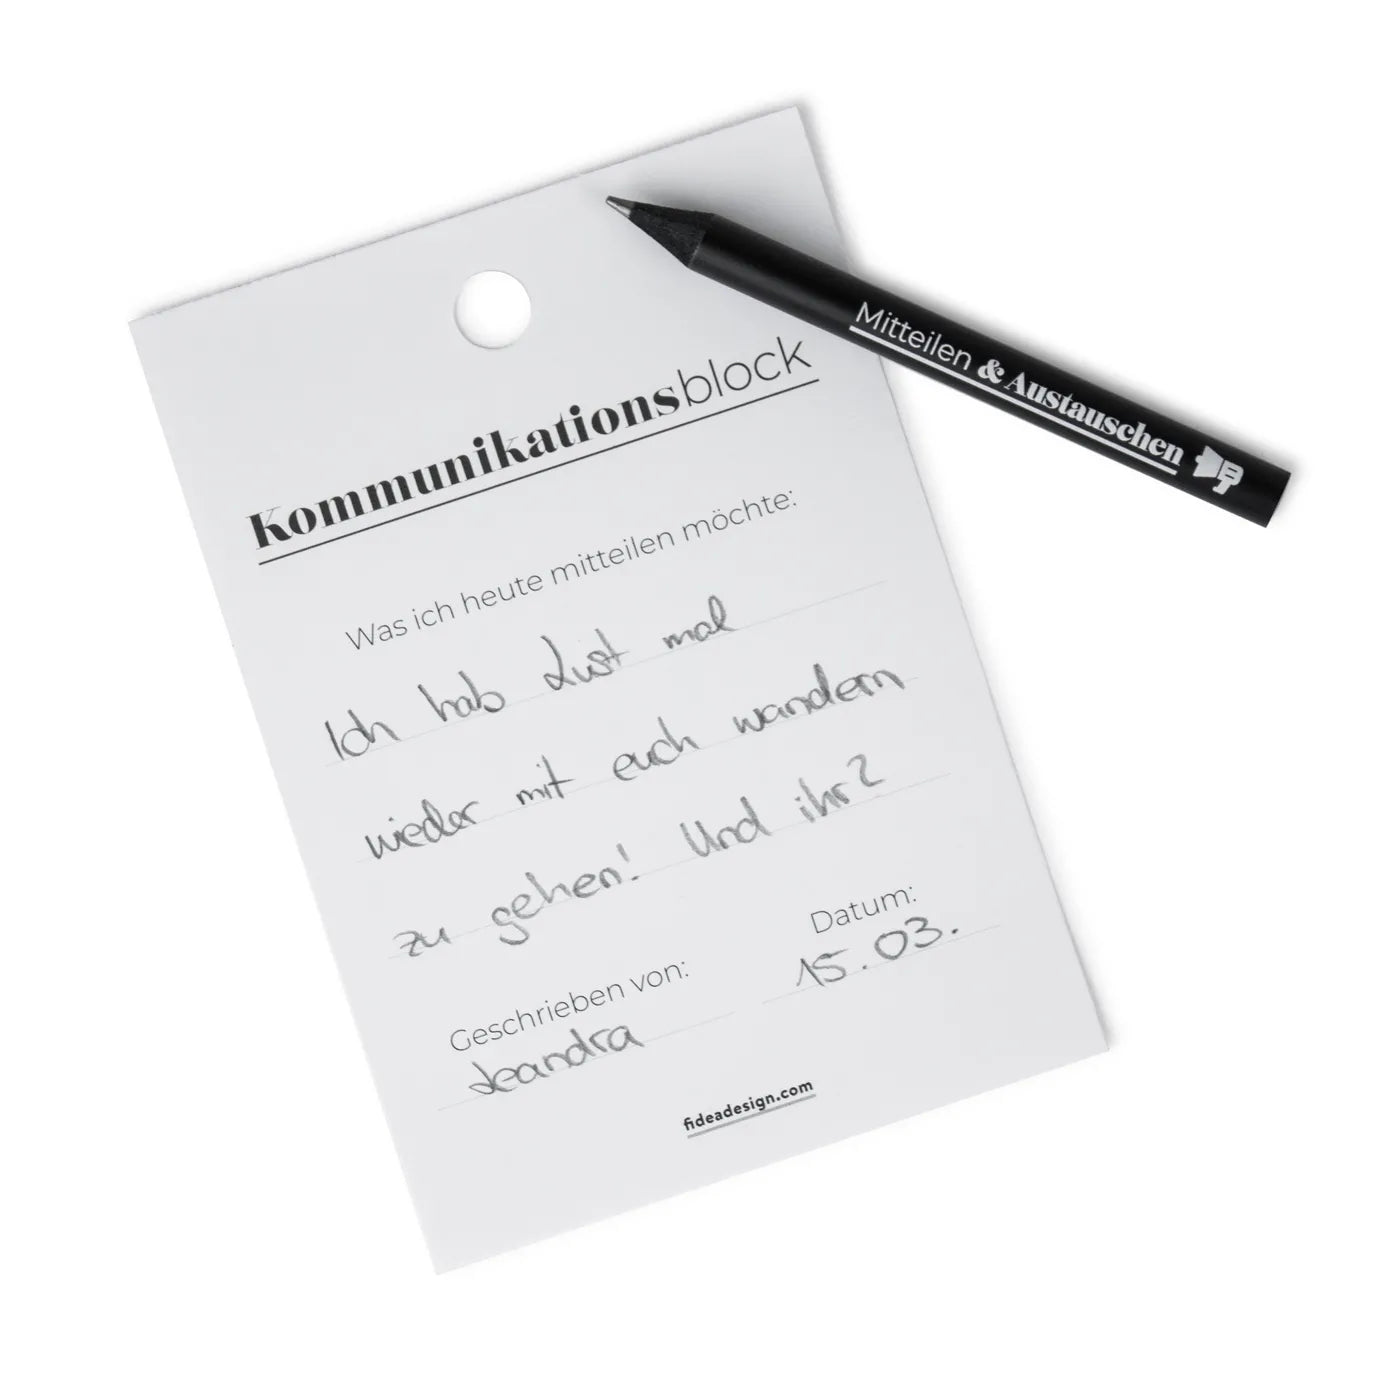 Kommunikationsblock
Mitteilen & Austauschen
Was ich heute mitteilen möchte:
Ich hab Lust mal
wieder mit euch wandern
zu gehen! Und ihr?
Datum:
15.03.
Geschrieben von:
Leandra
fideadesign.com